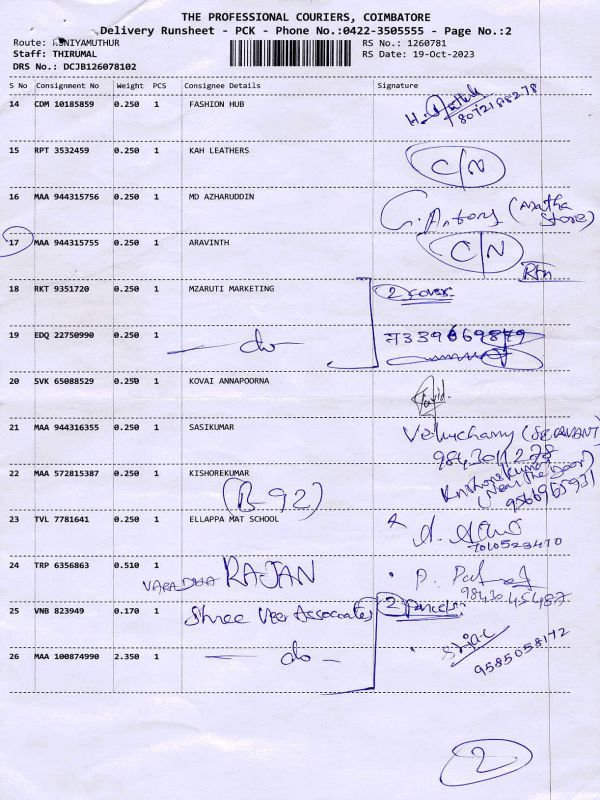 THE PROFESSIONAL COURIERS, COIMBATORE
Delivery Runsheet - PCK - Phone No.:0422-3505555 - Page No.:2
Route: KUNIYAMUTHUR RS No.: 1260781
Staff: THIRUMAL RS Date: 19-Oct-2023
DRS No.: DCJB126078102
S No Consignment No Weight PCS Consignee Details Signature
14 CDM 10185859 0.250 1 FASHION HUB
8072188278
15 RPT 3532459 0.250 1 KAH LEATHERS C/N
16 MAA 944315756 0.250 1 MD AZHARUDDIN G. Antony (Matha Store)
17 MAA 944315755 0.250 1 ARAVINTH C/N
Rtn
18 RKT 9351720 0.250 1 MZARUTI MARKETING 2 cover
19 EDQ 22750990 0.250 1 — do — 9339669879
20 SVK 65088529 0.250 1 KOVAI ANNAPOORNA
21 MAA 944316355 0.250 1 SASIKUMAR Veluchamy (SERVANT)
22 MAA 572815387 0.250 1 KISHOREKUMAR Krishorekumar
(B-92) (Near the Door)
9566965931
23 TVL 7781641 0.250 1 ELLAPPA MAT SCHOOL
7010523470
24 TRP 6356863 0.510 1 VARADHA RAJAN P.
25 VNB 823949 0.170 1 Shree Veer Associates 2 Parcels
26 MAA 100874990 2.350 1 — do —
9585058172
2